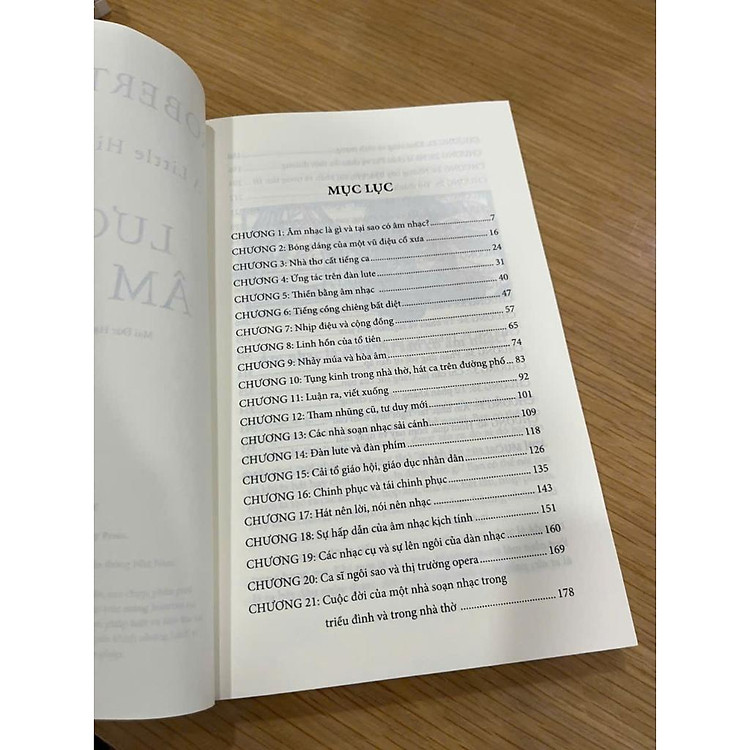 OBERT
Little Hi
LƯỢC
ÂM
MỤC LỤC
CHƯƠNG 1: Âm nhạc là gì và tại sao có âm nhạc? 7
CHƯƠNG 2: Bóng dáng của một vũ điệu cổ xưa 16
CHƯƠNG 3: Nhà thơ cất tiếng ca 24
CHƯƠNG 4: Ứng tác trên đàn lute 31
CHƯƠNG 5: Thiền bằng âm nhạc 40
CHƯƠNG 6: Tiếng cồng chiêng bất diệt 47
CHƯƠNG 7: Nhịp điệu và cộng đồng 57
CHƯƠNG 8: Linh hồn của tổ tiên 65
CHƯƠNG 9: Nhảy múa và hòa âm 74
CHƯƠNG 10: Tụng kinh trong nhà thờ, hát ca trên đường phố 83
CHƯƠNG 11: Luận ra, viết xuống 92
CHƯƠNG 12: Tham nhũng cũ, tư duy mới 101
CHƯƠNG 13: Các nhà soạn nhạc sải cánh 109
CHƯƠNG 14: Đàn lute và đàn phím 118
CHƯƠNG 15: Cải tổ giáo hội, giáo dục nhân dân 126
CHƯƠNG 16: Chinh phục và tái chinh phục 135
CHƯƠNG 17: Hát nên lời, nói nên nhạc 143
CHƯƠNG 18: Sự hấp dẫn của âm nhạc kịch tính 151
CHƯƠNG 19: Các nhạc cụ và sự lên ngôi của dàn nhạc 160
CHƯƠNG 20: Ca sĩ ngôi sao và thị trường opera 169
CHƯƠNG 21: Cuộc đời của một nhà soạn nhạc trong
triều đình và trong nhà thờ 178